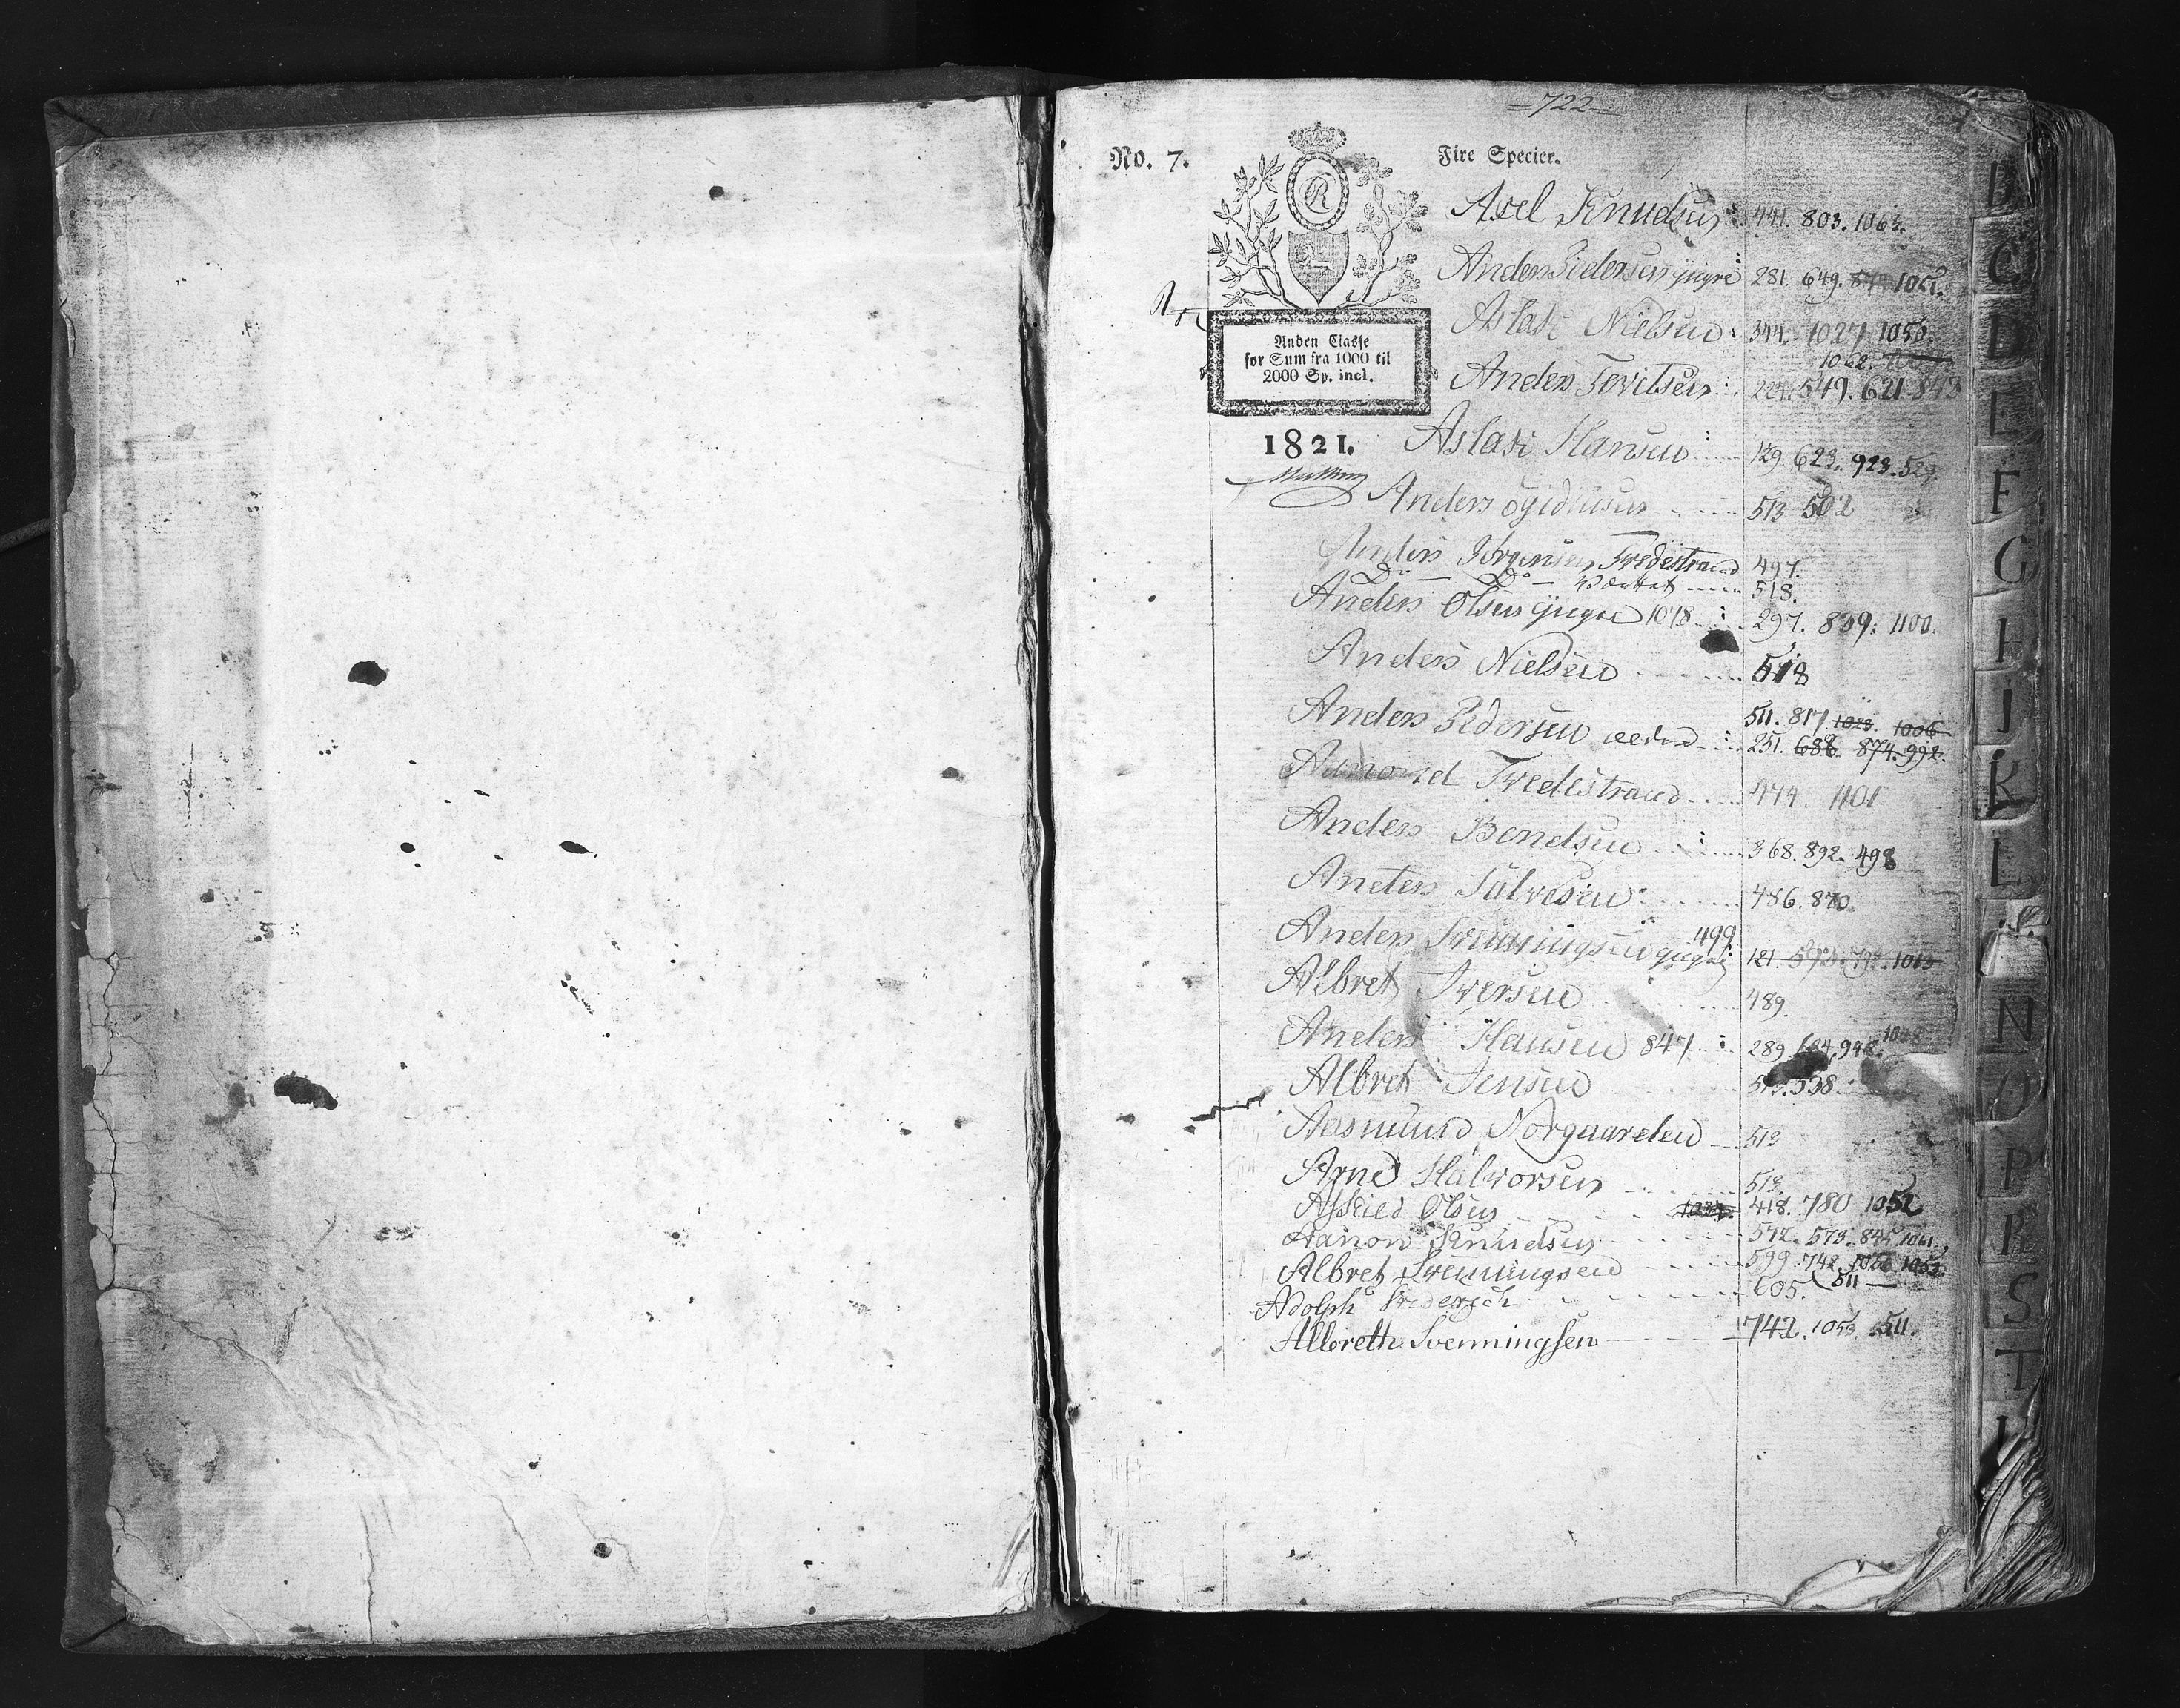 =722=
No. 7.
Fire Specier.
R
Anden Classe
for Sum fra 1000 til
2000 Sp. incl.
1821.
Axel Knudsen 441. 803. 1062.
Anders Pedersen yngre 281. 649. 1051.
Aslak Nielsen 344. 1027 1056.
1062.
Anders Tovelsen 224. 549. 621. 843
Aslak Hansen 129. 623. 923. 529.
Anders Ögidiusen 513 502
Anders Jörgensen Tvedestrand 497.
Do — Pantat 518.
Anders Olsen yngre 1078 297. 809. 1100.
Anders Nielsen 518
511. 817 1023. 1006
Anders Pedersen ældre 251. 688. 874. 992.
Amond Tvedestrand 474. 1101
Anders Bendsen 368. 892. 498
Anders Sälvesen 486. 870
499
Anders Svenningsen yngre 121. 592. 792. 1013
Albret Iversen 489.
Anders Hansen 847 289. 684. 948.
Albret Jensen 513. 538.
Aasmund Norgaarden 513
Arne Halvorsen 513
Olsen 1032. 418. 780 1052
Aanon Knudsen 572. 573. 845. 1061
Albret Svenningsen 599. 742. 1026. 1053
Adolph Frederich 605. 511
Albreth Svenningsen 742. 1053. 511.
B
C
D
E
F
G
H
I
K
L
N
O
P
R
S
T